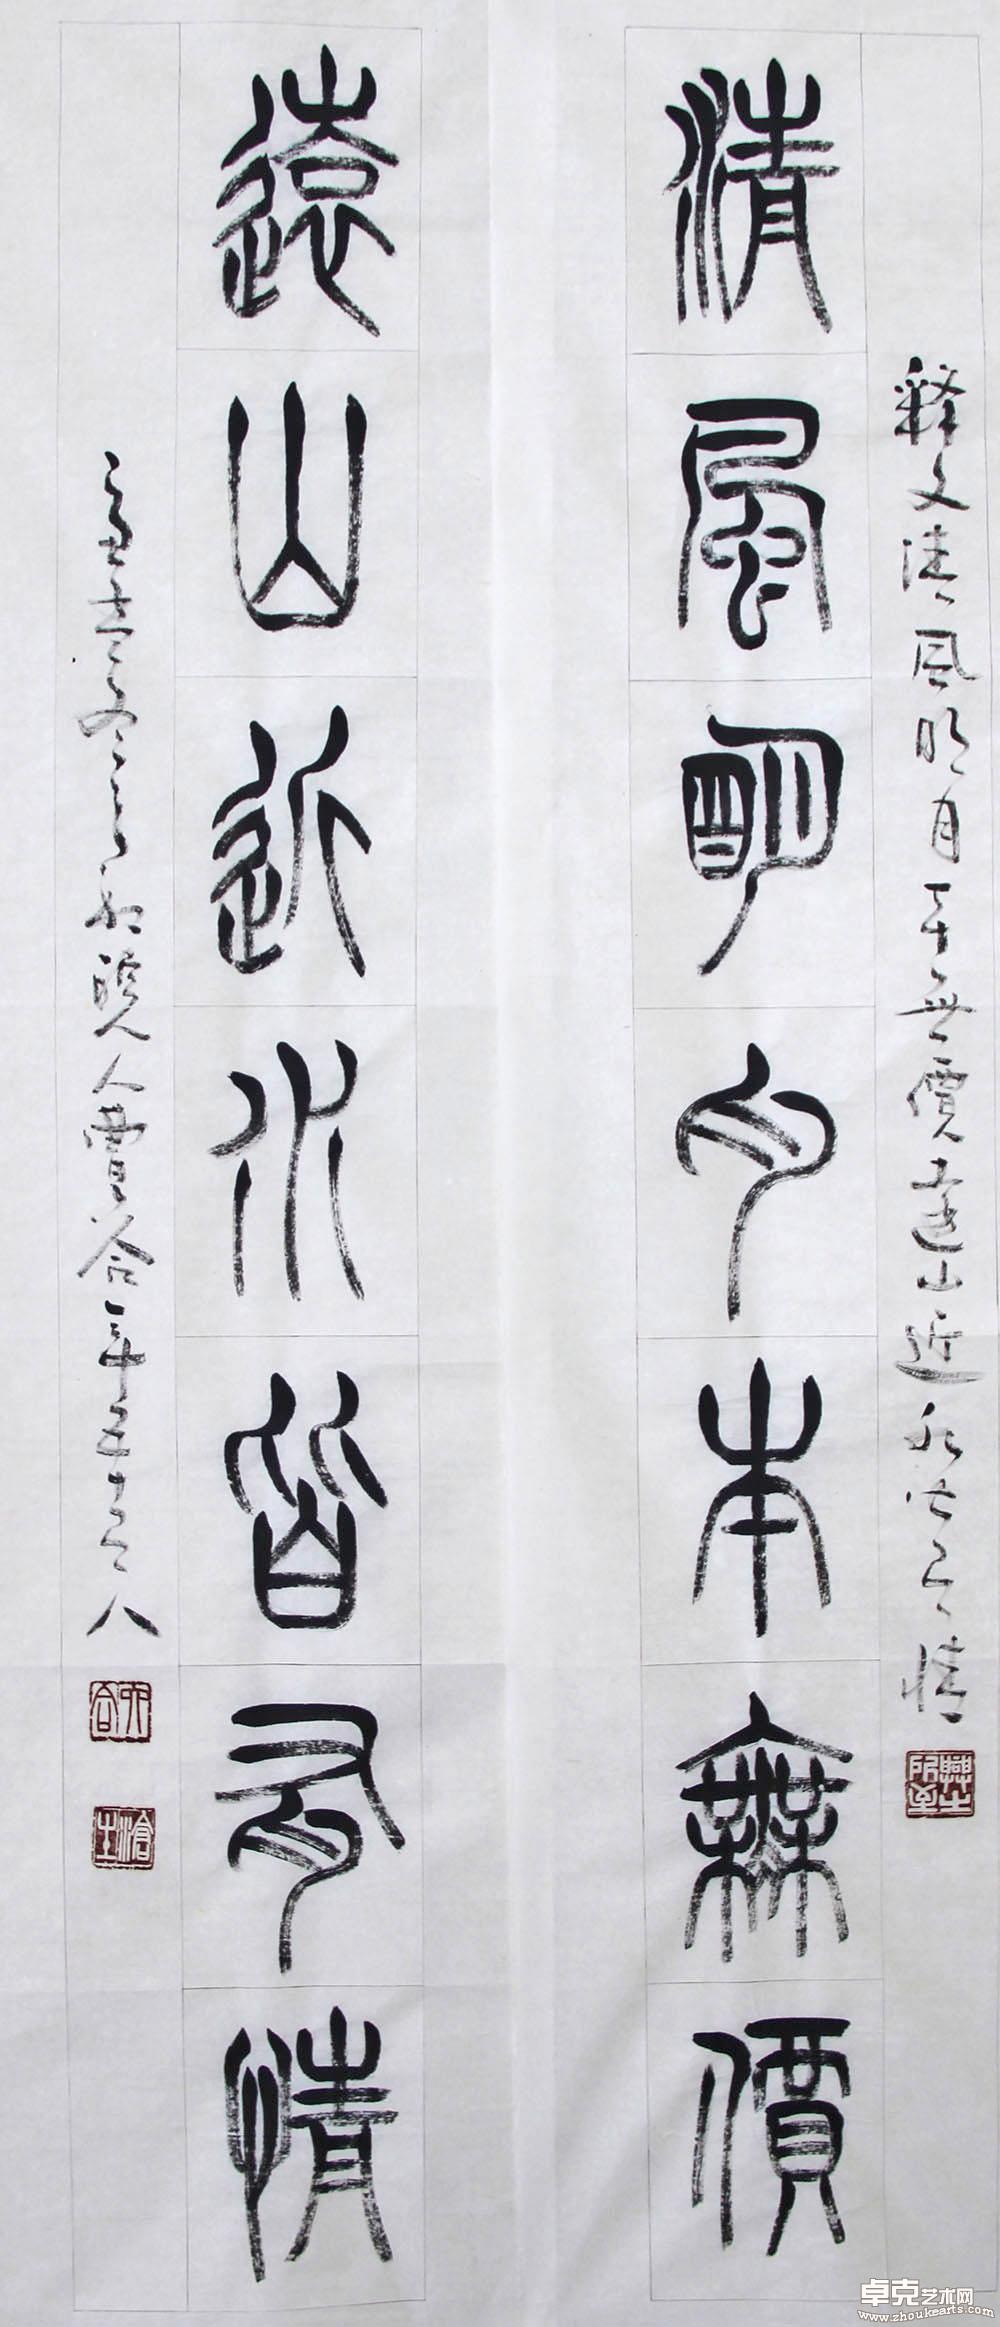 釋文清風明月本無價遠山近水皆有情
清風朙月本無價
遠山近水皆有情
人曹谷年五十又八
卓克艺术网
www.zhoukearts.com